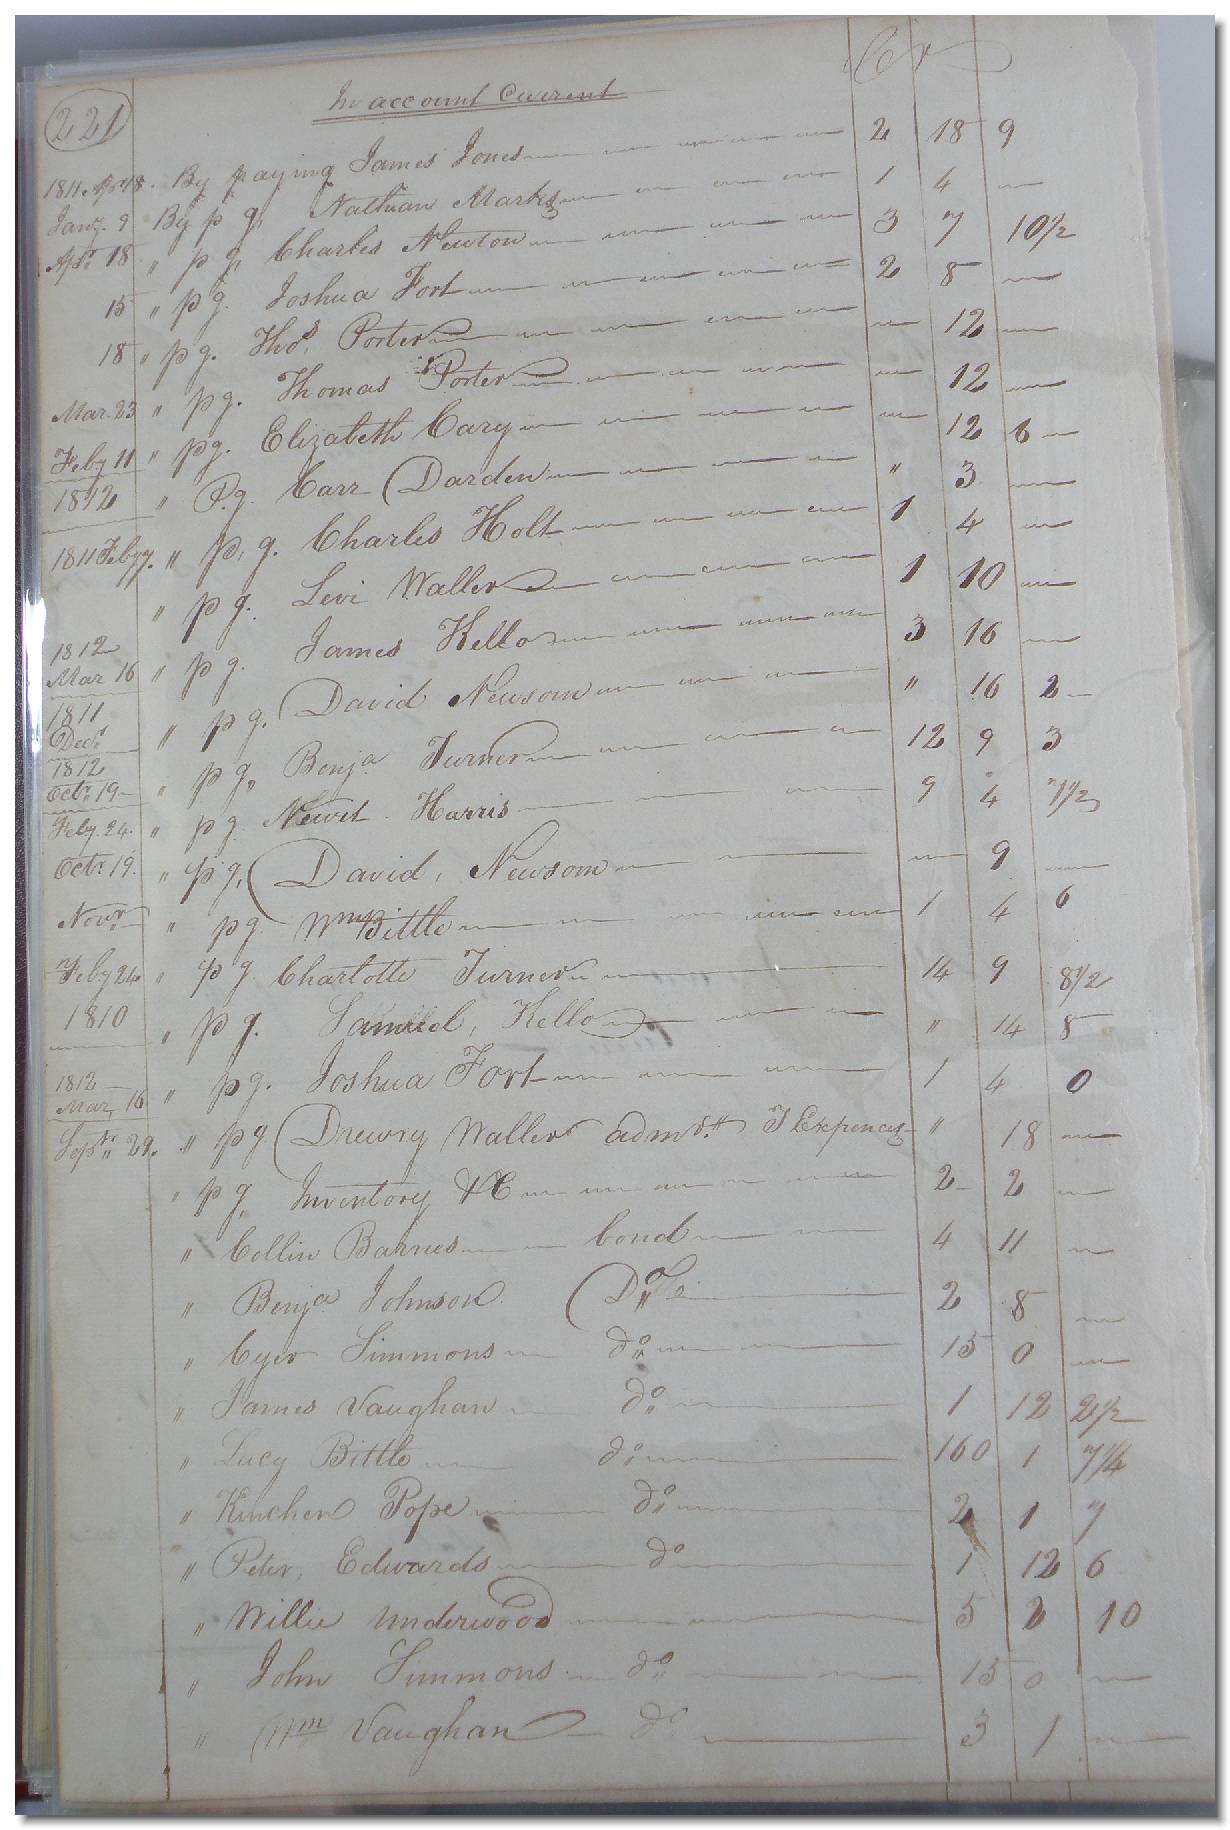 221
In account Current Cr
1811. Apr 18. By paying James Jones 2 18 9
Jany. 9 By p g, Nathan Marks 1 4
Apr. 18 " p g, Charles Newton 3 7 10 1/2
15 " p g. Joshua Fort 2 8
18 " p g. Thos. Porter 12
Mar. 23 " p g. Thomas Porter 12
Feby 11 " pg. Elizabeth Cary 12 6
1812 " P.g. Carr Darden " 3
1811 Feby 7. " p, g. Charles Holt 1 4
" p g. Levi Waller 1 10
1812
Mar 16 " p g. James Kello 3 16
1811
Decr. " p g. David Newsom " 16 2
1812
Octr. 19 " p g, Benja. Turner 12 9 3
Feby. 24. " p g Newit Harris 9 4 7 1/2
Octr. 19. " p g, David, Newsom 9
Novr. " p g Wm Bittle 1 4 6
Feby 24 " p g Charlotte Turner 14 9 8 1/2
1810 " p g. Samuel, Kello " 14 8
1812
Mar, 16 " p g. Joshua Fort 1 4 0
Septr. 29. " p g Drewry Waller admr. Expences " 18
" p g, Inventory &C 2 2
" Collin Barnes bond 4 11
" Benja Johnson Do 2 8
" Cyer Simmons do 15 0
" James Vaughan do 1 12 2 1/2
" Lucy Bittle do 160 1 7 1/4
" Kinchen Pope do 2 1 7
" Peter, Edwards do 1 12 6
" Willie Underwood 5 2 10
" John Simmons do 15 0
" Wm Vaughan do 3 1